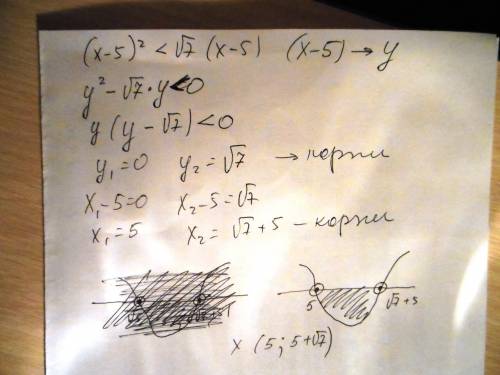 (x-5)² < √7 (x-5)   (x-5) → y
y² - √7 · y < 0
y (y - √7) < 0
y₁ = 0   y₂ = √7   → корни
x₁ - 5 = 0   x₂ - 5 = √7
x₁ = 5   x₂ = √7 + 5 - корни
5   √7 + 5
x (5; 5+√7)